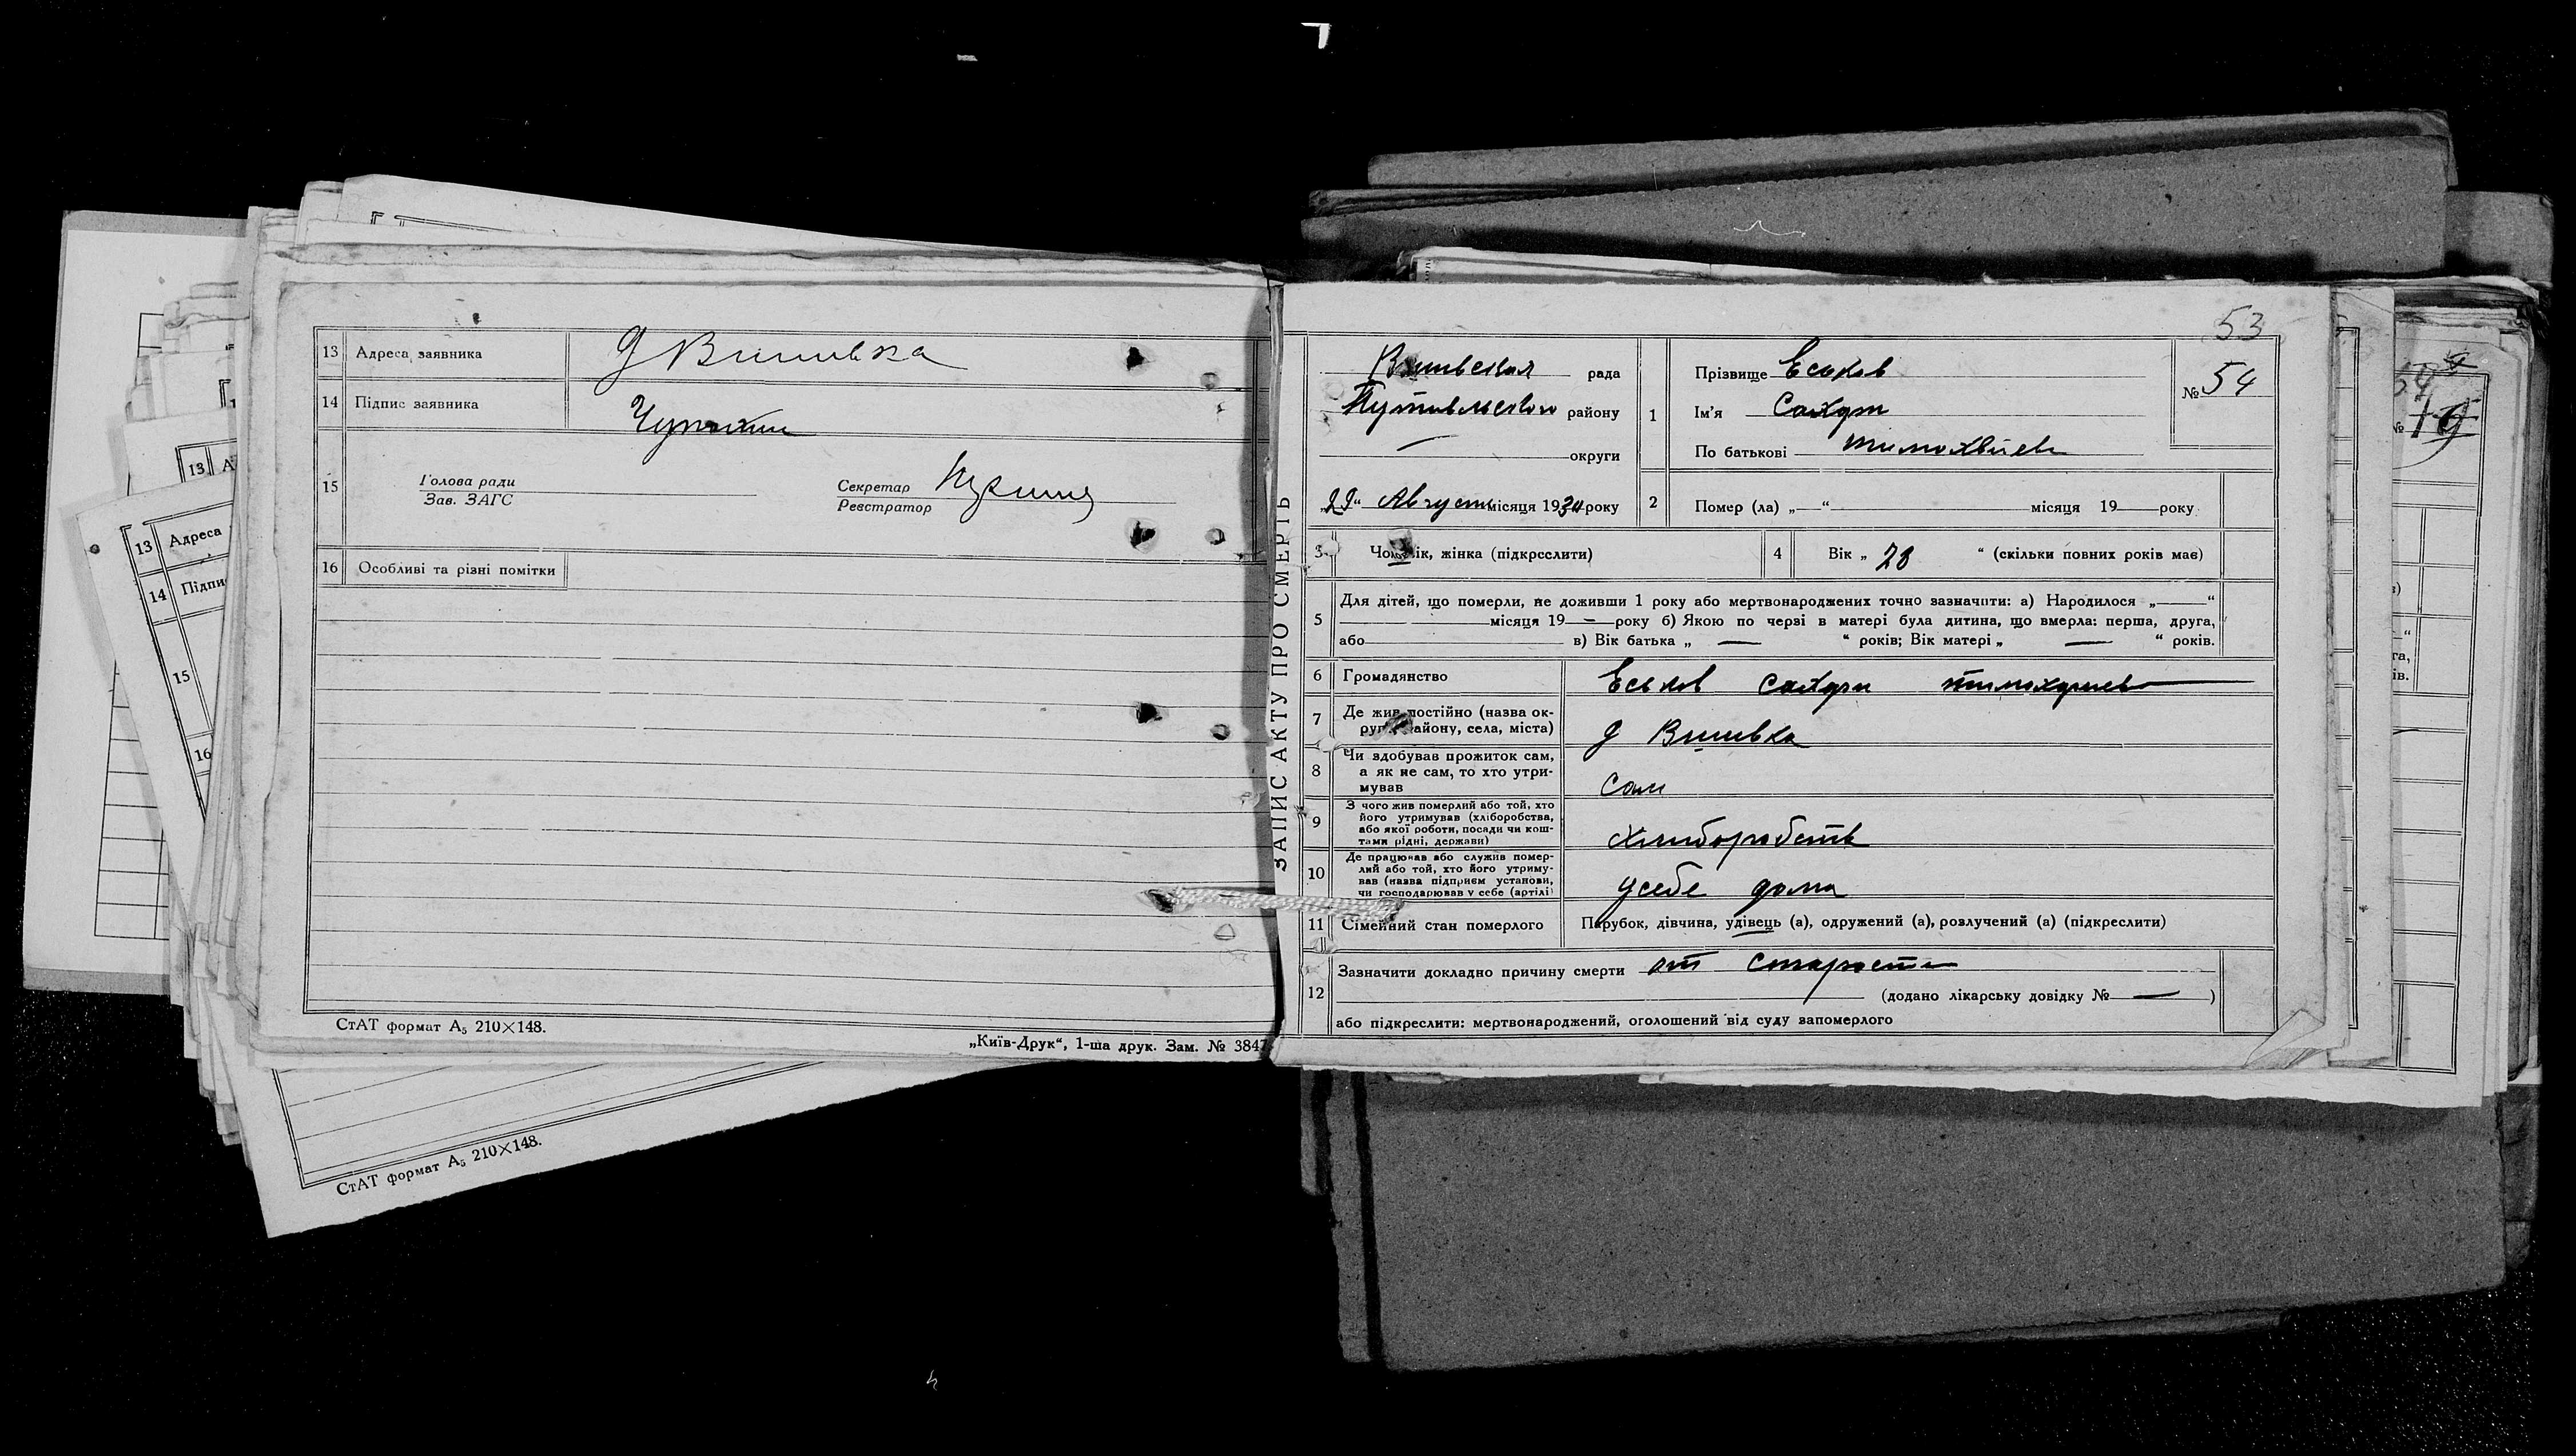 13 Адреса заявника д Вишивка
14 Підпис заявника
15 Голова ради
Зав. ЗАГС
Секретар
Реєстратор
16 Особливі та різні помітки
СтАТ формат А5 210×148.
„Київ-Друк“, 1-ша друк. Зам. № 384
13 А
13 Адреса
14 Підпи
15
16
СтАТ формат А5 210×148.
ЗАПИС АКТУ ПРО СМЕРТЬ
53
рада
Путивльского району
— округи
„29“ Август місяця 19 року
1 Прізвище Еськов
Ім'я
По батькові
№ 54
2 Помер (ла) „—“ місяця 19 — року
3 Чоловік, жінка (підкреслити)
4 Вік „ 28 “ (скільки повних років має)
5 Для дітей, що померли, не доживши 1 року або мертвонароджених точно зазначити: а) Народилося „—“
місяця 19 — року б) Якою по черзі в матері була дитина, що вмерла: перша, друга,
або в) Вік батька „ — “ років; Вік матері „ — “ років.
6 Громадянство Еськов
7 Де жив постійно (назва ок-
руги, району, села, міста) д Вишивка
8 Чи здобував прожиток сам,
а як не сам, то хто утри-
мував сам
9 З чого жив померлий або той, хто
його утримував (хліборобства,
або якої роботи, посади чи кош-
тами рідні, держави) хлиборобств
10 Де працював або служив помер-
лий або той, хто його утриму-
вав (назва підприєм установи,
чи господарював у себе (артілі) усебе дома
11 Сімейний стан померлого Парубок, дівчина, удівець (а), одружений (а), розлучений (а) (підкреслити)
12 Зазначити докладно причину смерти от старости
(додано лікарську довідку № — )
або підкреслити: мертвонароджений, оголошений від суду запомерлого